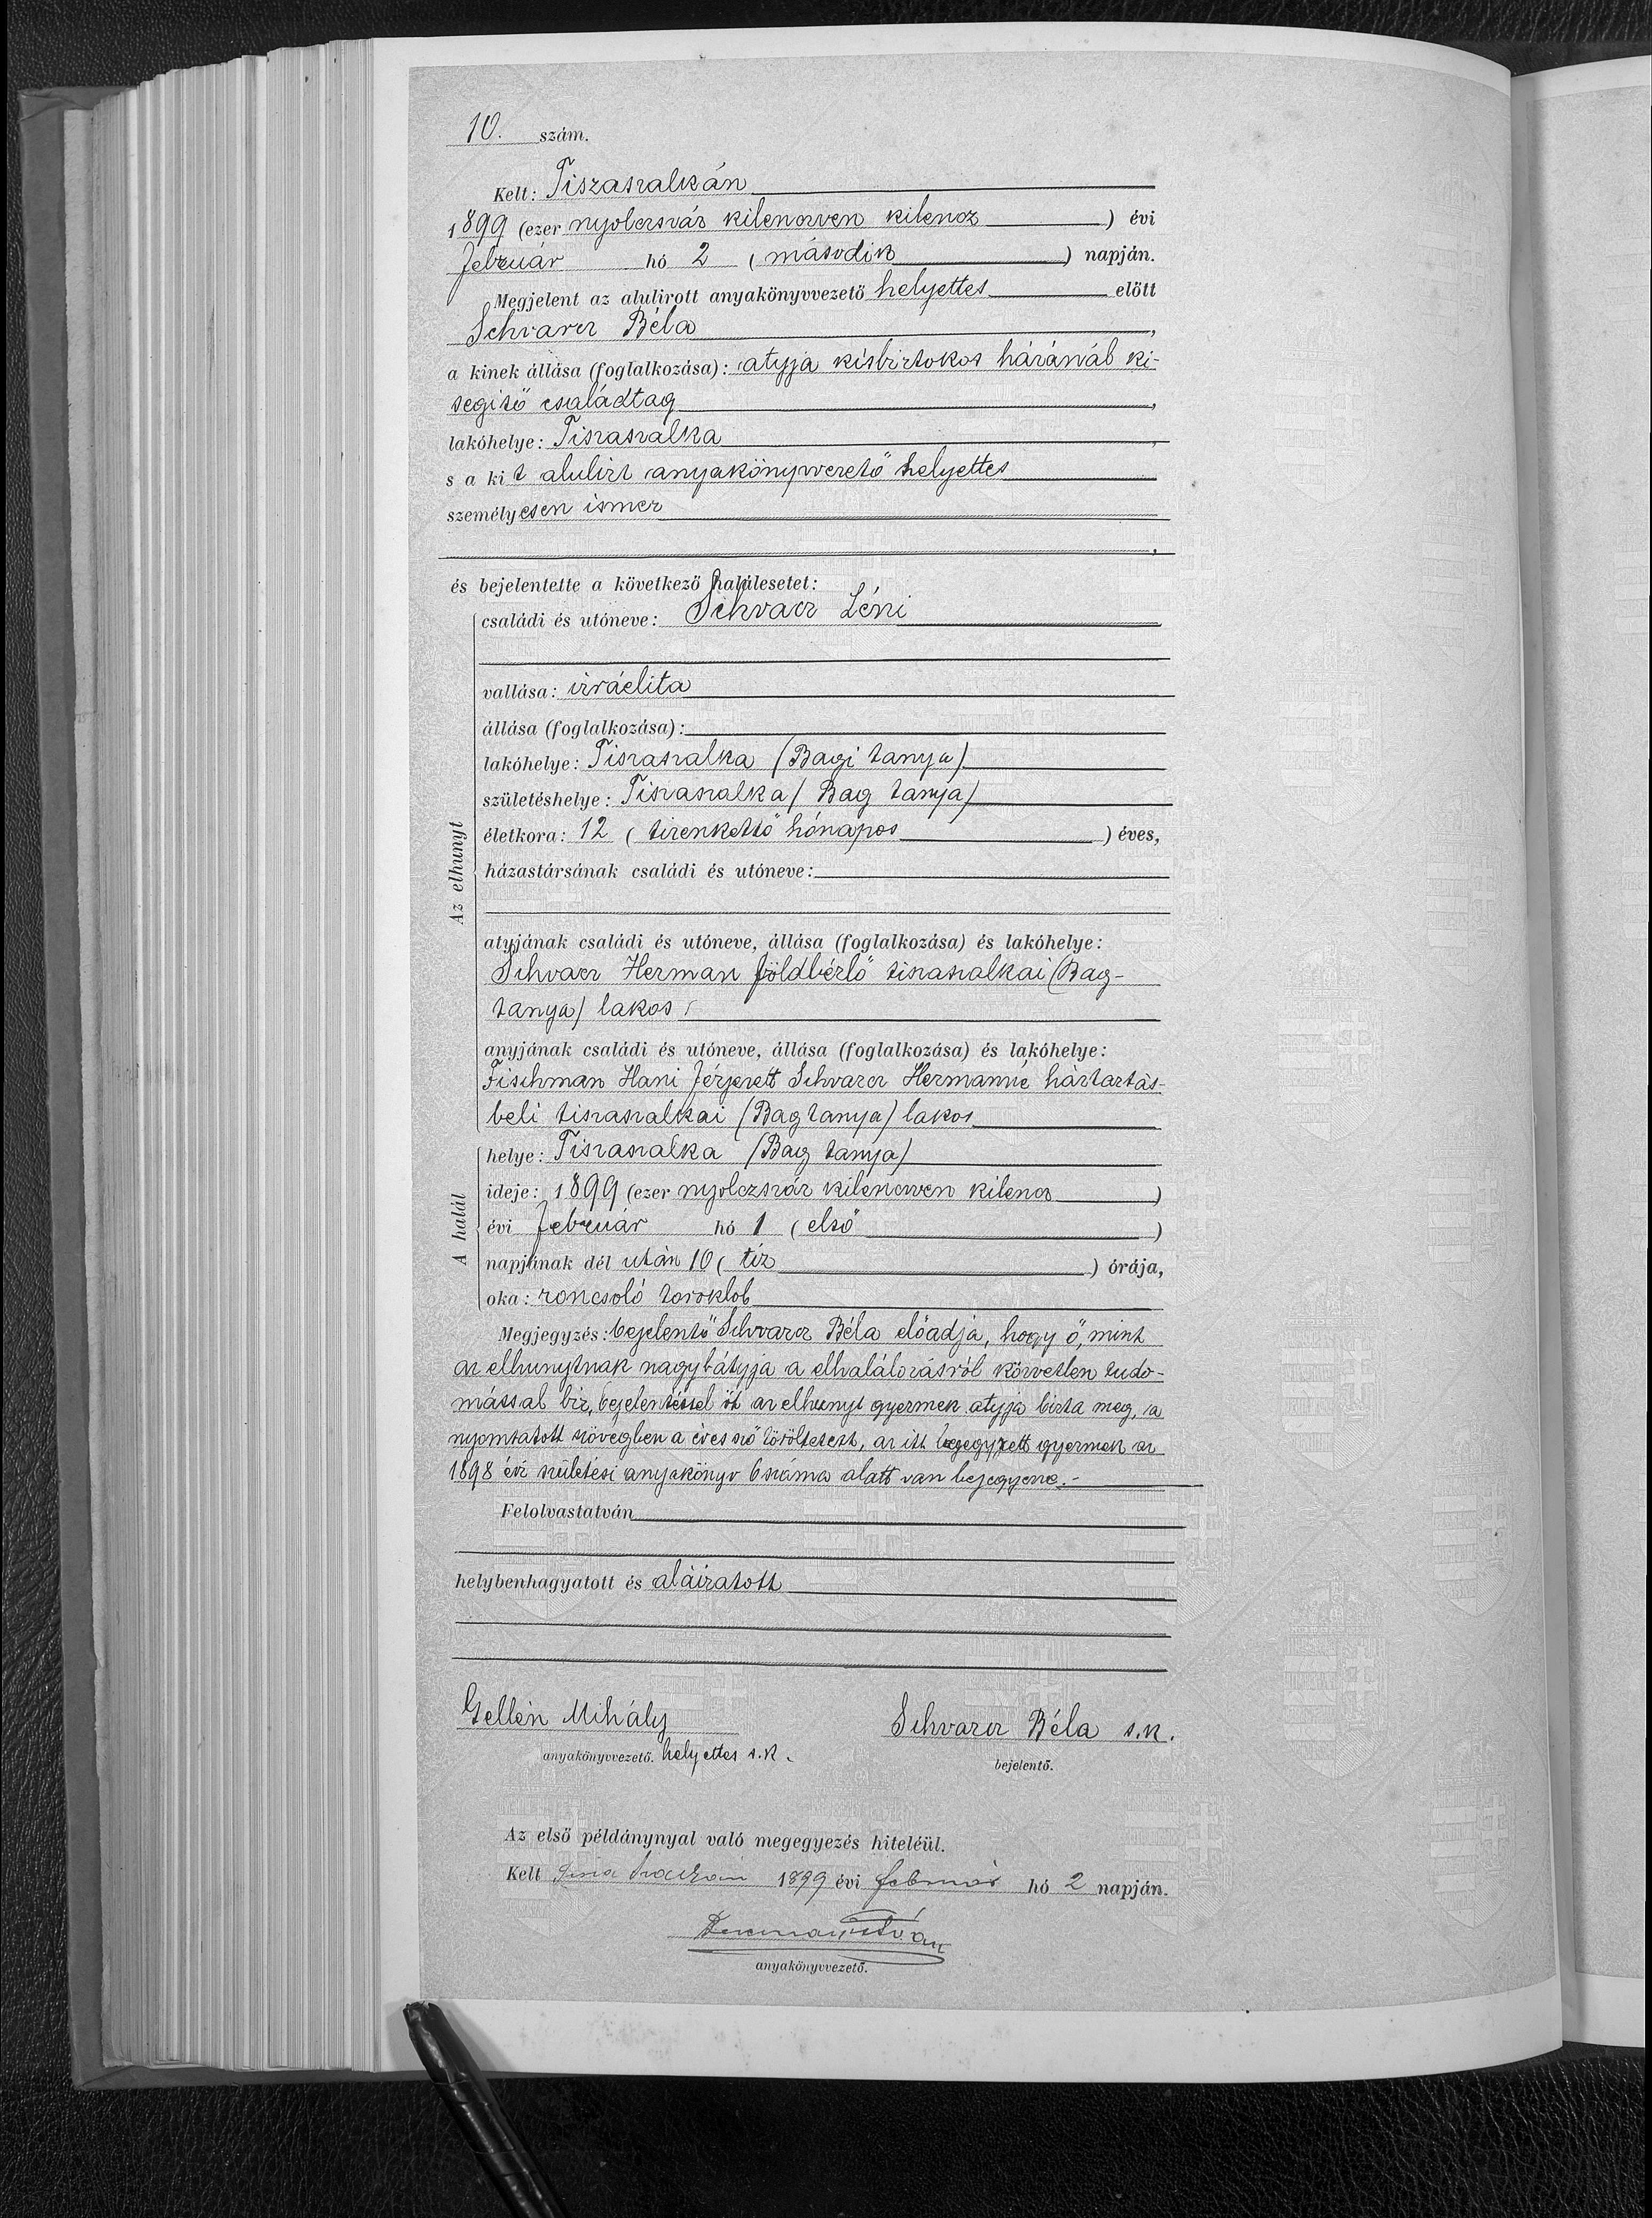 10. szám.
Kelt: Tiszaszalkán
1899 (ezer nyolczszáz kilenczven kilencz) évi
február hó 2 (második) napján.
Megjelent az alulirott anyakönyvvezető helyettes előtt
Schvarcz Béla,
a kinek állása (foglalkozása): atyja kisbirtokos házánál ki-
segitő családtag,
lakóhelye: Tiszaszalka,
s a kit alulirt anyakönyvvezető helyettes
személyesen ismer
és bejelentette a következő halálesetet:
Az elhunyt
családi és utóneve: Schvarcz Léni
vallása: izráelita
állása (foglalkozása):
lakóhelye: Tiszaszalka (Bagi tanya)
születéshelye: Tiszaszalka (Bag tanya)
életkora: 12 (tizenkettő hónapos) éves,
házastársának családi és utóneve:
atyjának családi és utóneve, állása (foglalkozása) és lakóhelye:
Schvarcz Herman földbérlő tiszaszalkai (Bag-
tanya) lakos
anyjának családi és utóneve, állása (foglalkozása) és lakóhelye:
Fischman Hani férjezett Schvarcz Hermanné háztartás-
beli tiszaszalkai (Bag tanya) lakos
A halál
helye: Tiszaszalka (Bag tanya)
ideje: 1899 (ezer nyolczszáz kilenczven kilencz)
évi február hó 1 (első)
napjának dél után 10 (tíz) órája,
oka: roncsoló toroklob
Megjegyzés: bejelentő Schvarcz Béla előadja, hogy ő, mint
az elhunytnak nagybátyja a elhalálozásról közvetlen tudo-
mással bir, bejelentéssel őt az elhunyt gyermek atyja bizta meg, a
nyomtatott szövegben a éves szó töröltetett, az itt bejegyzett gyermek az
1898 évi születési anyakönyv 6 száma alatt van bejegyezve.-
Felolvastatván
helybenhagyatott és aláiratott
Gellén Mihály Schvarcz Béla s.k.
anyakönyvvezető. helyettes s.k. bejelentő.
Az első példánynyal való megegyezés hiteléül.
Kelt 1899 évi február hó 2 napján.
István
anyakönyvvezető.